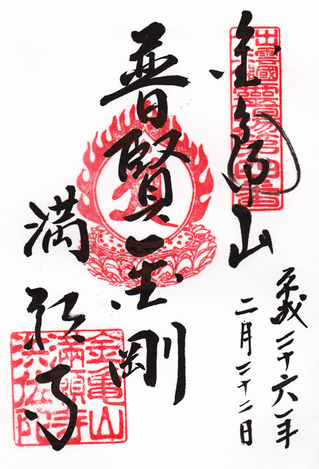 金亀山
平成二十六年
二月二十二日
普賢金剛
満願寺
金亀山
満願寺